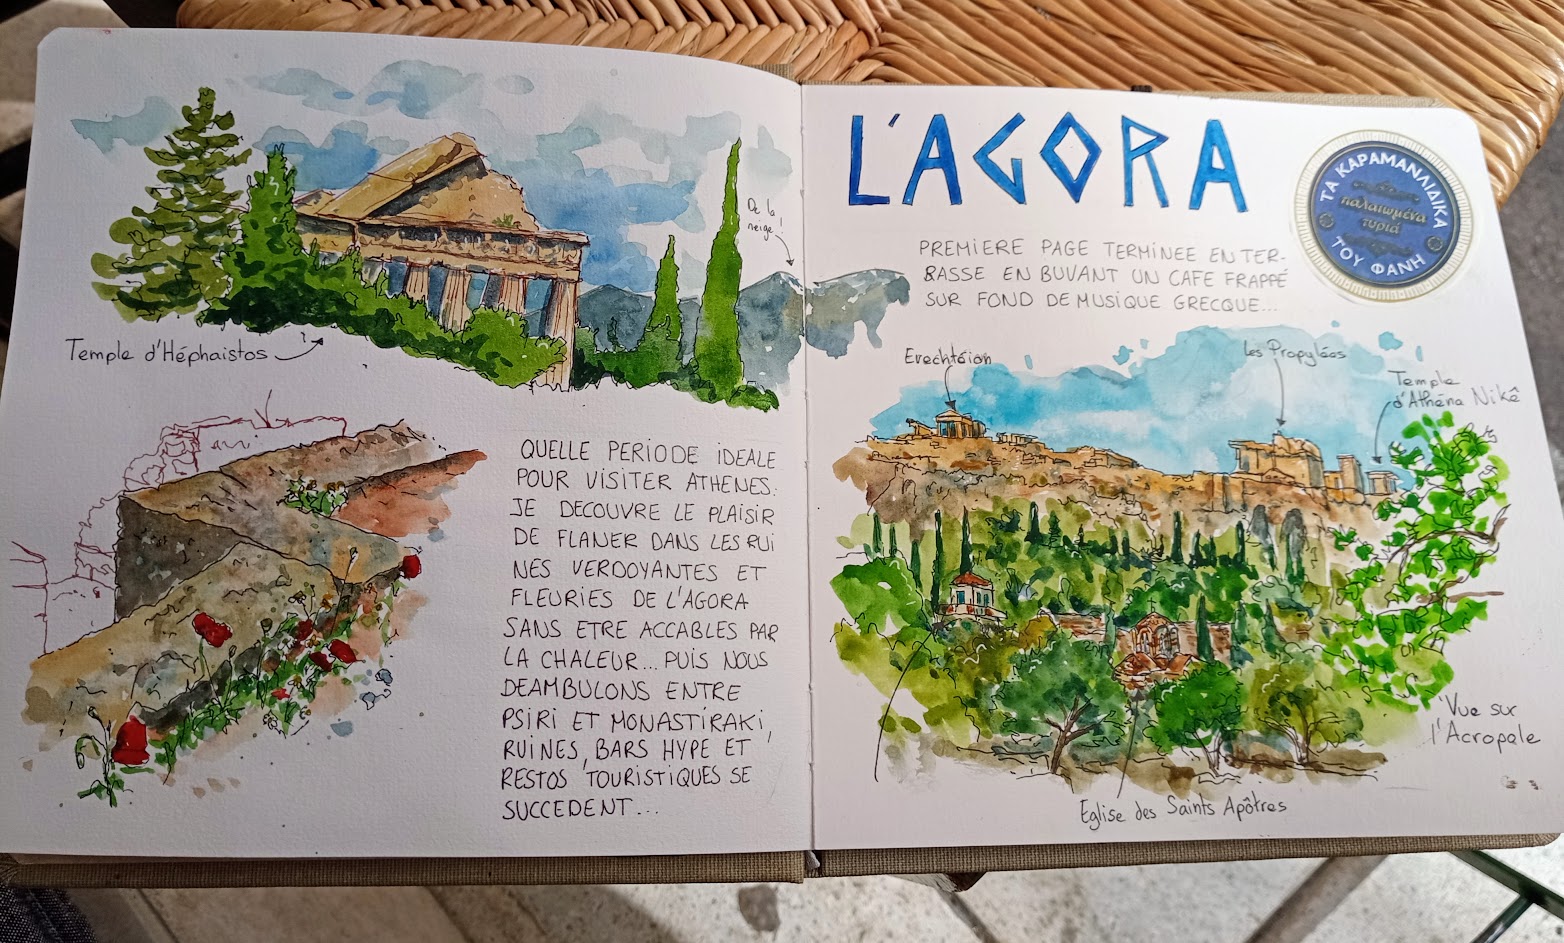 De la
neige!
Temple d'Héphaistos
QUELLE PERIODE IDEALE
POUR VISITER ATHENES.
JE DECOUVRE LE PLAISIR
DE FLANER DANS LES RUI
NES VERDOYANTES ET
FLEURIES DE L'AGORA
SANS ETRE ACCABLES PAR
LA CHALEUR... PUIS NOUS
DEAMBULONS ENTRE
PSIRI ET MONASTIRAKI,
RUINES, BARS HYPE ET
RESTOS TOURISTIQUES SE
SUCCEDENT...
L'AGORA
ΤΑ ΚΑΡΑΜΑΝΛΙΔΙΚΑ
παλαιωμένα
τυριά
ΤΟΥ ΦΑΝΗ
PREMIERE PAGE TERMINEE EN TER-
RASSE EN BUVANT UN CAFE FRAPPÉ
SUR FOND DE MUSIQUE GRECQUE...
Erechtéion
Les Propylées
Temple
d'Athéna Nikê
Vue sur
l'Acropole
Eglise des Saints Apôtres